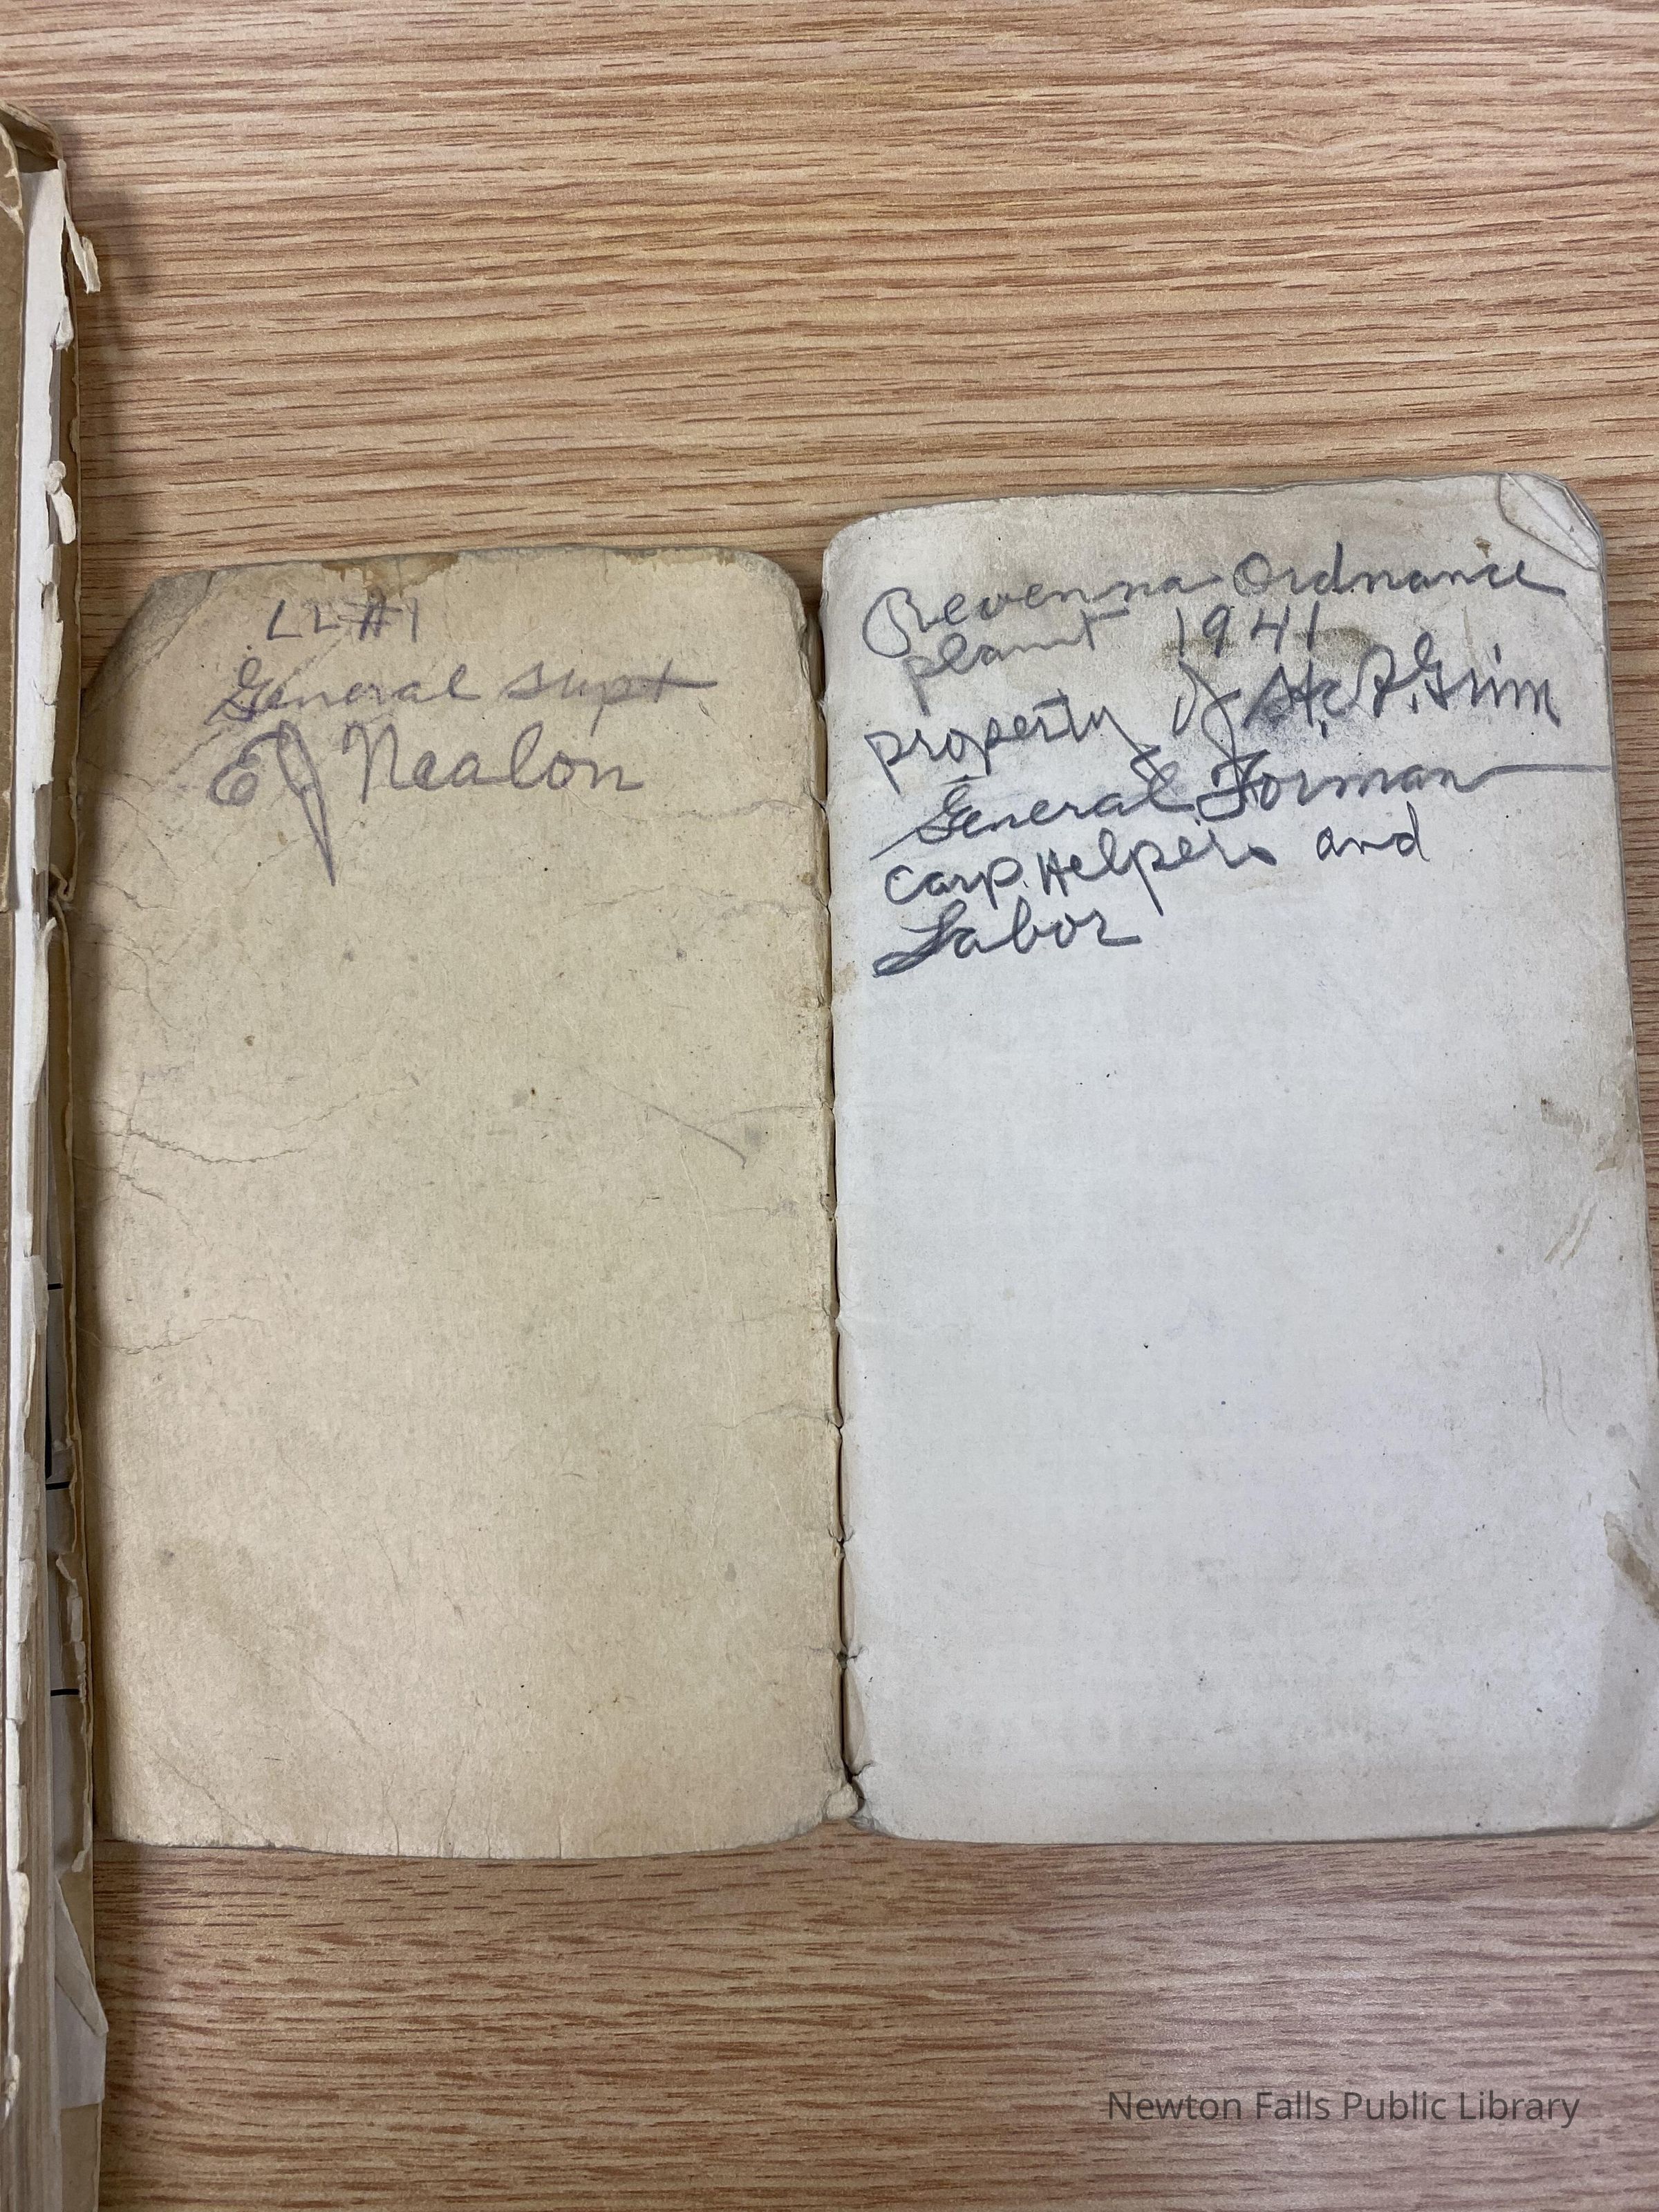 LL #1
General Supt
EJ Nealon
Revenna Ordnance
plant 1941
property of H. A. Grim
General Forman
Carp. Helpers and
Labor
Newton Falls Public Library